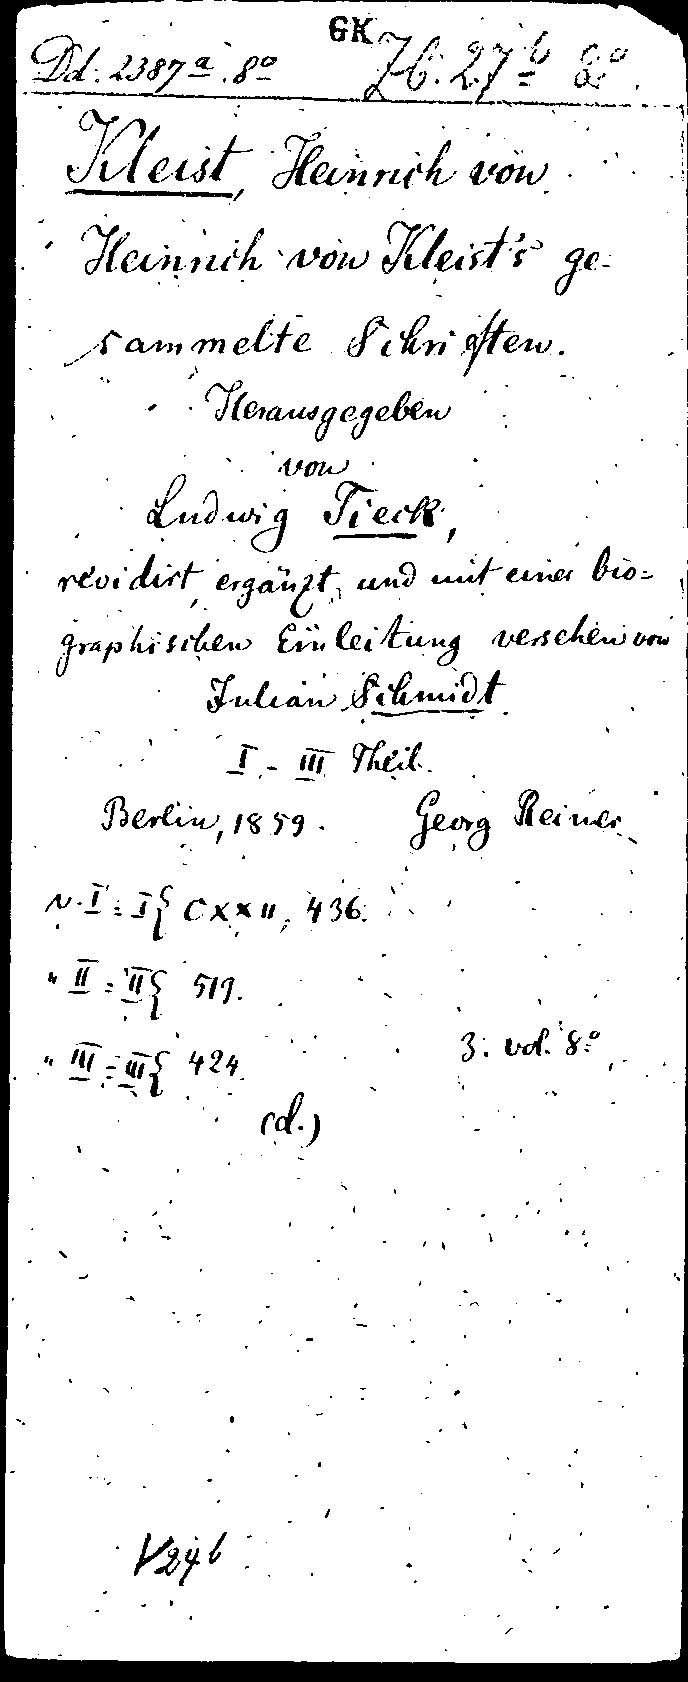 GK
Dd. 2387a. 8o Zb. 27b 8o.
Kleist, Heinrich von
Heinrich von Kleist's ge-
sammelte Schriften.
Herausgegeben
von
Ludwig Tieck,
revidirt, ergänzt, und mit einer bio=
graphischen Einleitung versehen von
Julian Schmidt
I - III Theil.
Berlin, 1859. Georg Reimer
v. I = I{ CXXII, 436.
" II = II{ 519.
" III = III{ 424 3. vol. 8o
(d.)
V24b